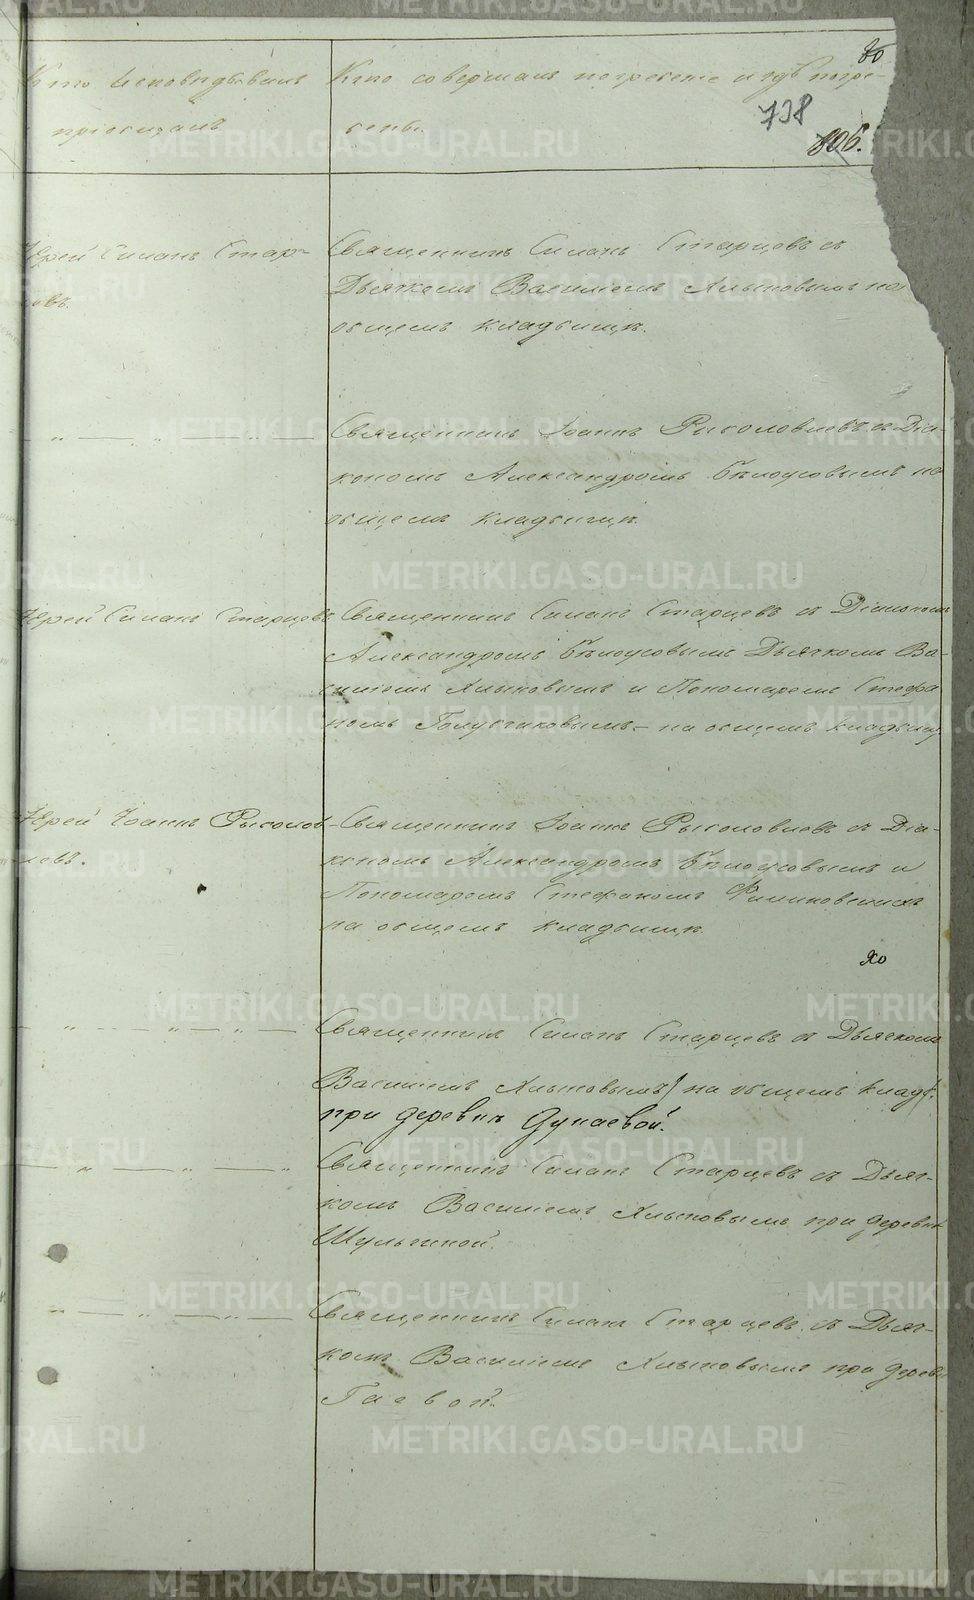 80
Кто исповѣдывалъ
пріобщалъ
Кто совершалъ погребеніе и гдѣ погре-
бены.
738
806.
Іерей Симонъ Стар-
цовъ.
Священникъ Симонъ Старцевъ съ
Дьячкомъ Василіемъ Хлыновымъ на
общемъ кладбищѣ.
Священникъ Іоаннъ Рыболовлевъ съ Діа-
кономъ Александромъ Бѣлоусовымъ на
общемъ кладбищѣ.
Іерей Симонъ Старцевъ
Священникъ Симонъ Старцевъ съ Діакономъ
Александромъ Бѣлоусовымъ Дьячкомъ Ва-
силіемъ Хлыновымъ и Пономаремъ Стефа
номъ Голубчиковымъ – на общемъ кладбищѣ
Іерей Іоаннъ Рыболов-
левъ.
Священникъ Іоаннъ Рыболовлевъ съ Діа-
кономъ Александромъ Бѣлоусовымъ и
Пономаремъ Стефаномъ
на общемъ кладбищѣ.
Священникъ Симонъ Старцевъ съ Дьячкомъ
Василіемъ Хлыновымъ на общемъ кладб.
при деревнѣ Дунаевой.
Священникъ Симонъ Старцевъ съ Дьяч-
комъ Василіемъ Хлыновымъ при деревнѣ
Шульгиной.
Священникъ Симонъ Старцевъ съ Дьяч-
комъ Василіемъ Хлыновымъ при деревнѣ
Гаевой.
METRIKI.GASO-URAL.RU